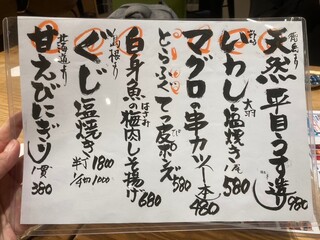 より
天然平目うす造り 980
大羽
いわし塩焼き 580
マグロの串カツ一本 480
とらふぐてっ皮ポンズ 580
はさみ
白身魚の梅肉しそ揚げ 680
島根より
ぐじ塩焼き 1800
1000
北海道より
甘えびにぎり 1貫 380